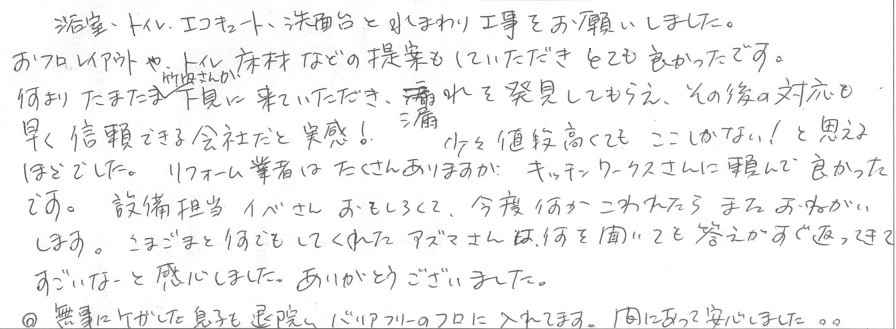 浴室、トイレ、エコキュート、洗面台と水まわり工事をお願いしました。
おフロレイアウトや、トイレ床材などの提案もしていただきとても良かったです。
竹内さんが
何より たまたま 下見に来ていただき、漏れを発見してもらえ、その後の対応も
漏
早く信頼できる会社だと実感! 少々値段高くても ここしかない!と思える
ほどでした。 リフォーム業者はたくさんありますが キッチンワークスさんに頼んで良かった
です。 設備担当 イベさん おもしろくて、今度何かこわれたら またおねがい
します。 こまごまと何でもしてくれた アズマさんは、何を聞いても答えがすぐ返ってきて
すごいなーと感心しました。ありがとうございました。
◎ 無事にケガした息子も退院し バリアフリーのフロに入れてます。間にあって安心しました。。